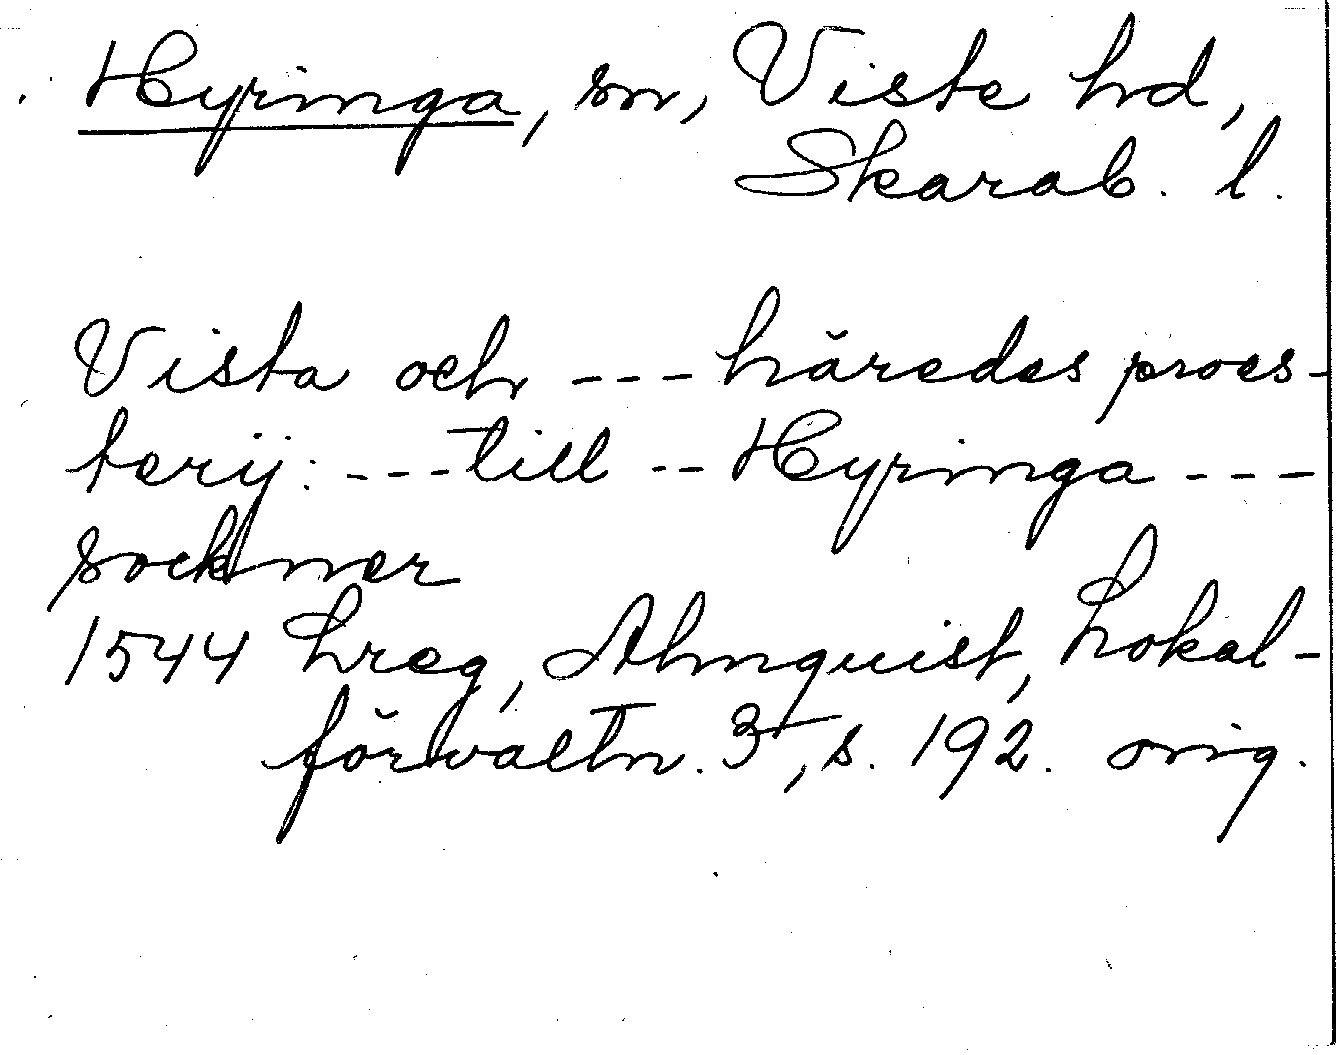 Hyringa, sn, Viste hd,
Skarab. l.
Vista och --- häredes proes-
terij: --- till -- Hyringa ---
sockner
1544 Lreg, Almquist, Lokal-
förvaltn. 3, s. 192. orig.